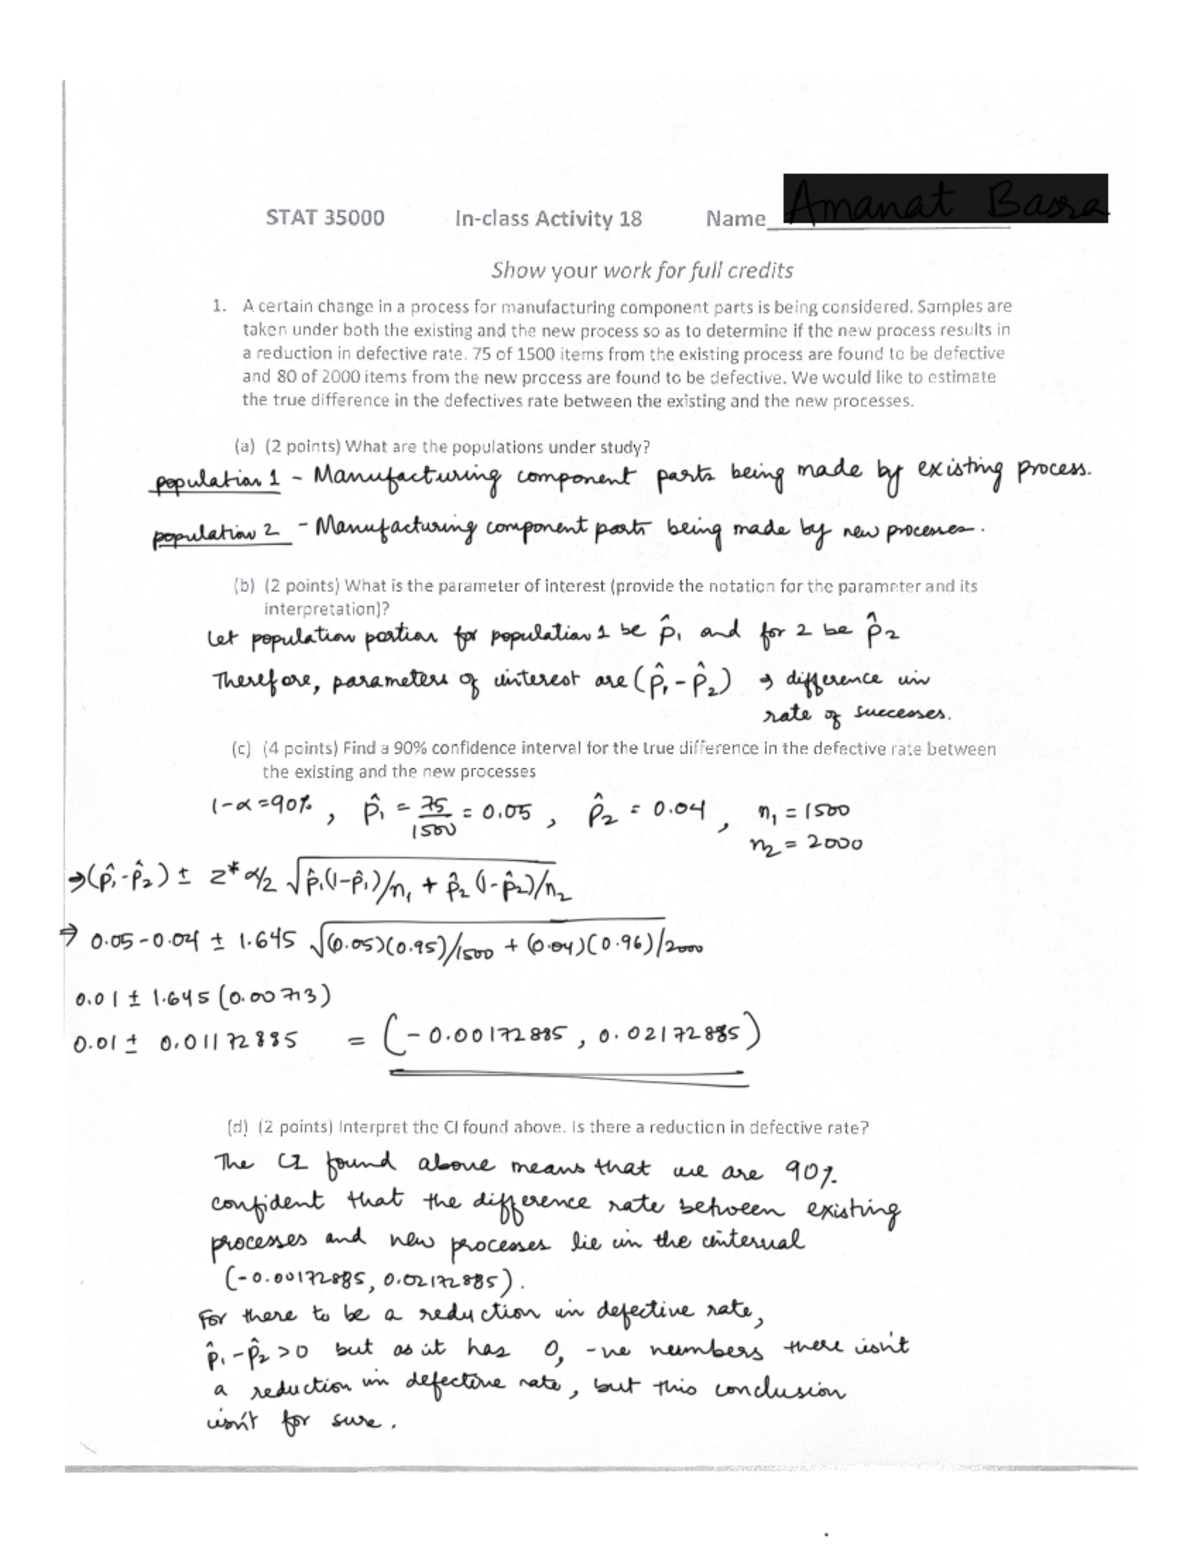 STAT 35000 In-class Activity 18 Name Amanat Basra
Show your work for full credits
1. A certain change in a process for manufacturing component parts is being considered. Samples are
taken under both the existing and the new process so as to determine if the new process results in
a reduction in defective rate. 75 of 1500 items from the existing process are found to be defective
and 80 of 2000 items from the new process are found to be defective. We would like to estimate
the true difference in the defectives rate between the existing and the new processes.
(a) (2 points) What are the populations under study?
population 1 - Manufacturing component parts being made by existing process.
population 2 - Manufacturing component parts being made by new processes.
(b) (2 points) What is the parameter of interest (provide the notation for the parameter and its
interpretation)?
Let population portion for population 1 be p̂₁ and for 2 be p̂₂
Therefore, parameters of interest are (p̂₁ - p̂₂) → difference in
rate of successes.
(c) (4 points) Find a 90% confidence interval for the true difference in the defective rate between
the existing and the new processes
1-α = 90%, p̂₁ = 75/1500 = 0.05, p̂₂ = 0.04, n₁ = 1500
n₂ = 2000
⇒ (p̂₁ - p̂₂) ± z* α/2 √p̂₁(1-p̂₁)/n₁ + p̂₂(1-p̂₂)/n₂
⇒ 0.05 - 0.04 ± 1.645 √(0.05)(0.95)/1500 + (0.04)(0.96)/2000
0.01 ± 1.645 (0.00713)
0.01 ± 0.01172885 = (-0.00172885, 0.02172885)
(d) (2 points) Interpret the CI found above. Is there a reduction in defective rate?
The CI found above means that we are 90%
confident that the difference rate between existing
processes and new processes lie in the interval
(-0.00172885, 0.02172885).
For there to be a reduction in defective rate,
p̂₁ - p̂₂ > 0 but as it has 0, -ve numbers there isn't
a reduction in defective rate, but this conclusion
isn't for sure.